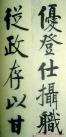 優登仕攝職
從政存以甘